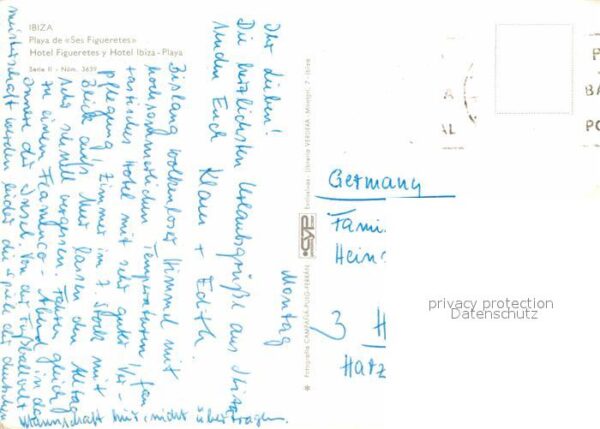 IBIZA
Playa de «Ses Figueretes»
Hotel Figueretes y Hotel Ibiza - Playa
Serie II - Núm. 3639
Montag
Ihr Lieben!
Die herzlichsten Urlaubsgrüße aus Ibiza
senden Euch
Klaus + Edith.
Bislang wolkenloser Himmel mit
hochsommerlichen Temperaturen, fan-
tastisches Hotel mit sehr guter Ver-
pflegung, Zimmer im 7. Stock mit
Blick aufs Meer lassen den Alltag
sehr schnell vergessen. Fahren gleich
zu einem Flamenco-Abend in das
Innere der Insel. Von der Fußballwelt-
meisterschaft werden leider die Spiele der deutschen
Mannschaft nicht übertragen.
Fotografía CAMPAÑÁ-PUIG-FERRÁN
Exclusivas - Librería VERDERA
Germany
Fami
Hein
3 H
Harz
privacy protection
Datenschutz
A
AL
P
BA
PO